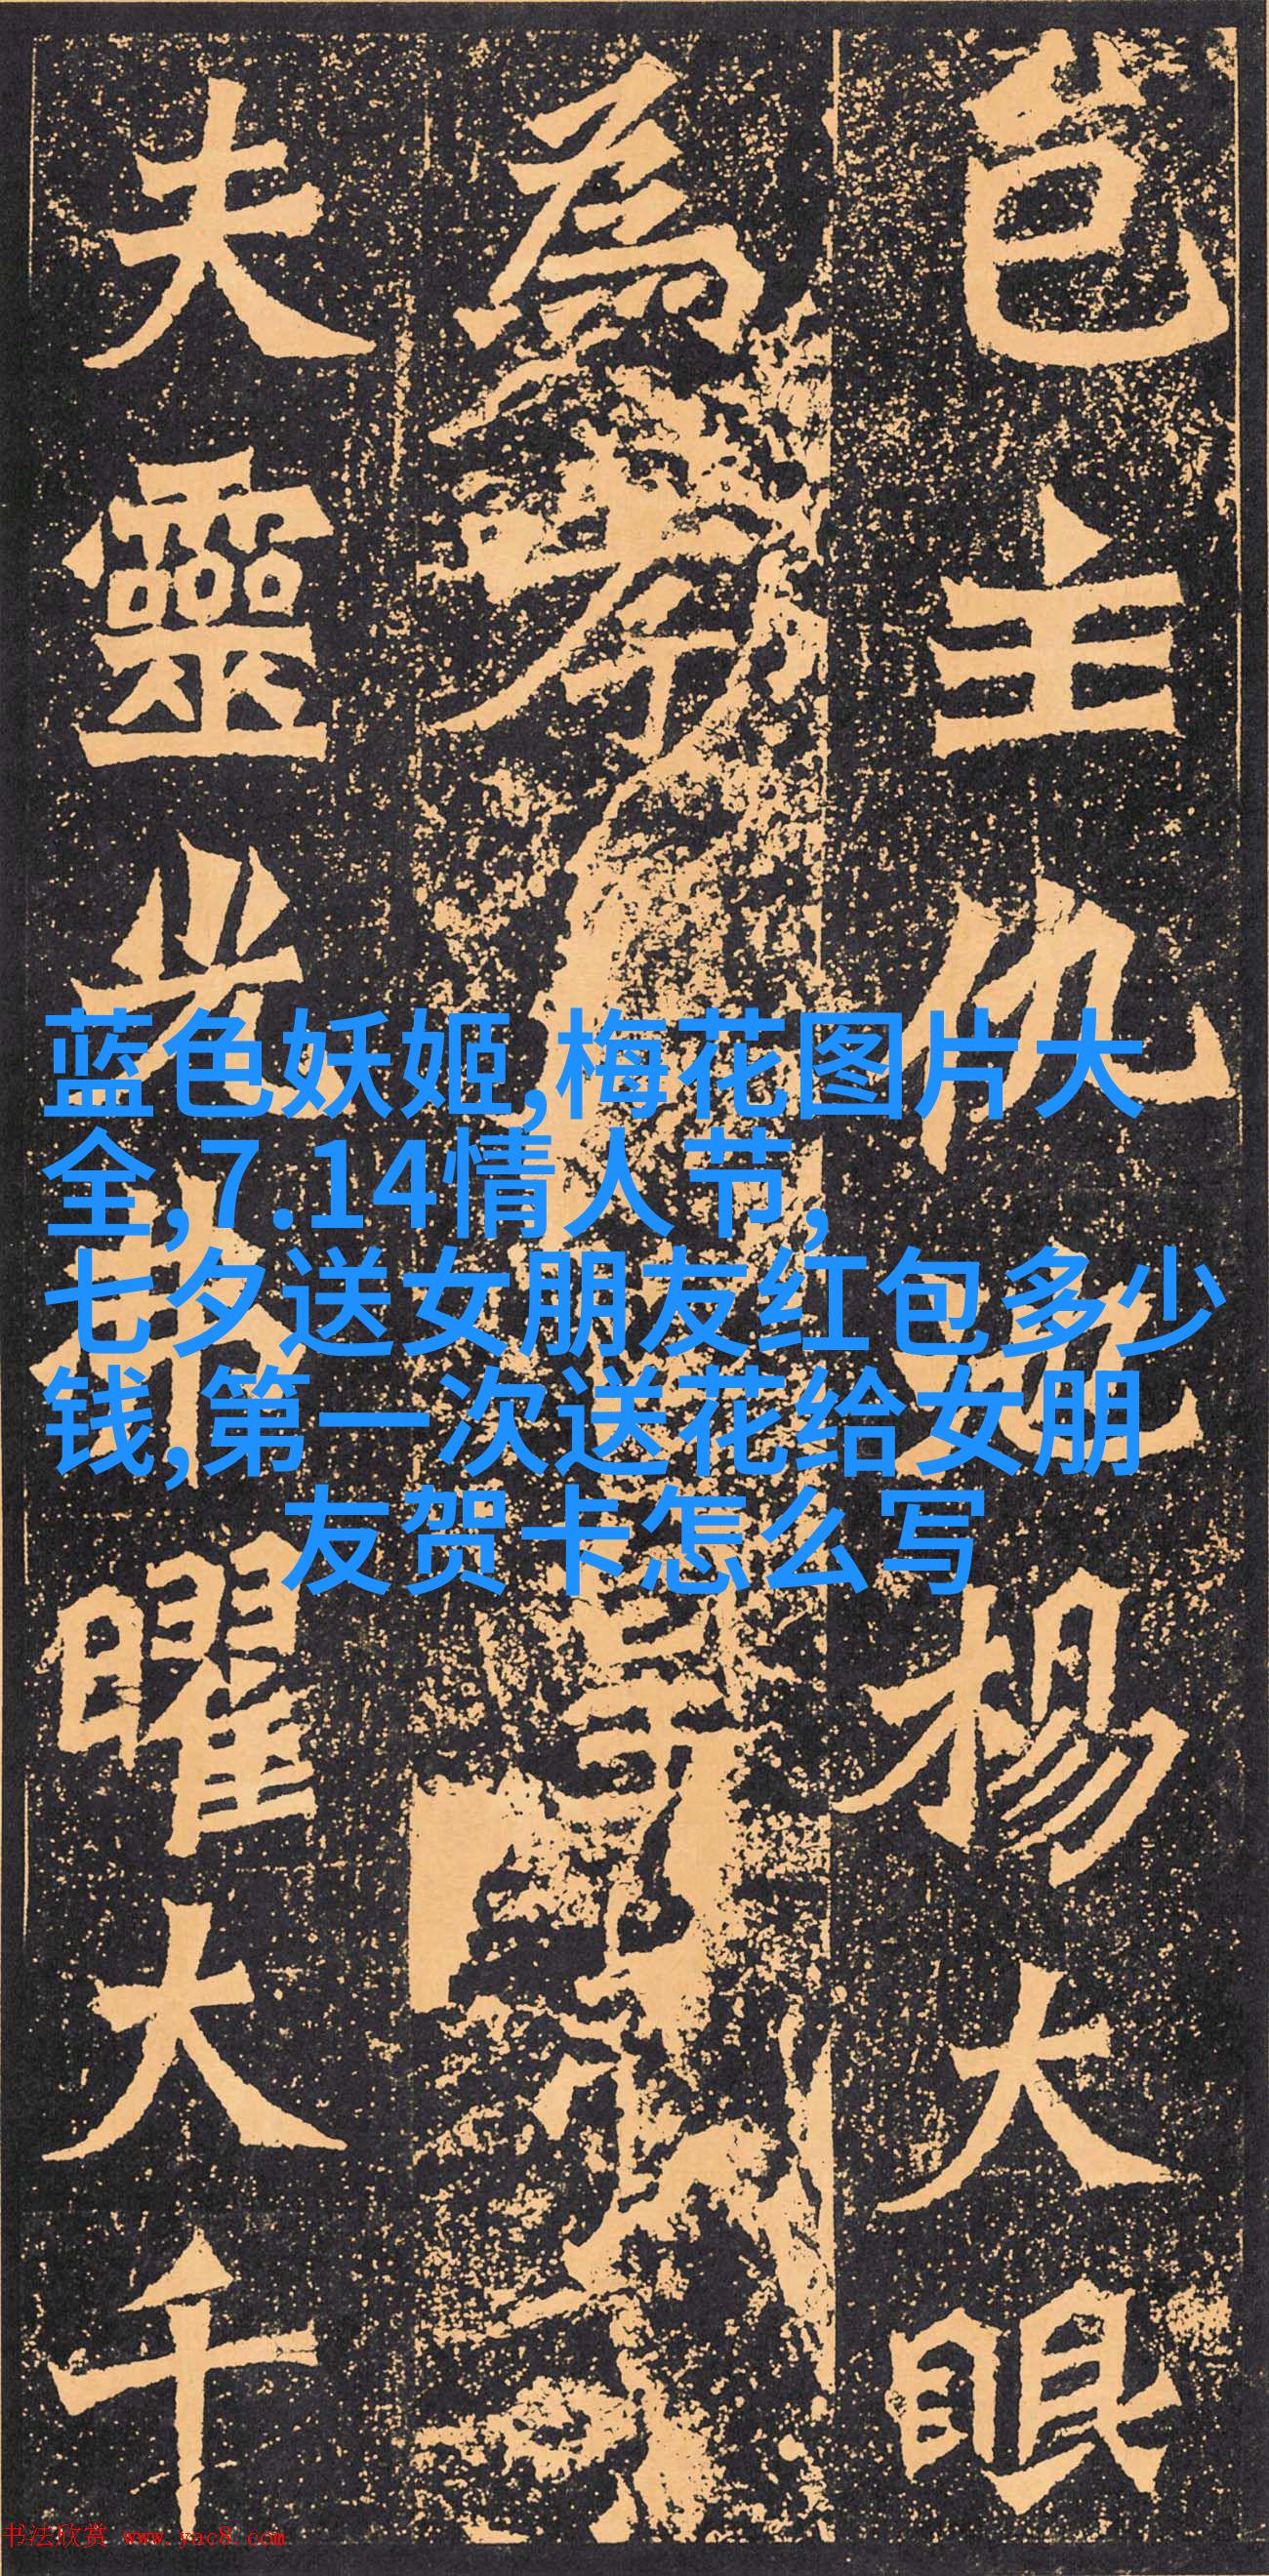 邑主仇池楊大眼
為孝
夫靈光弗曜大千
蓝色妖姬,梅花图片大
全,7.14情人节,
七夕送女朋友红包多少
钱,第一次送花给女朋
友贺卡怎么写
书法欣赏 www.yac8.com